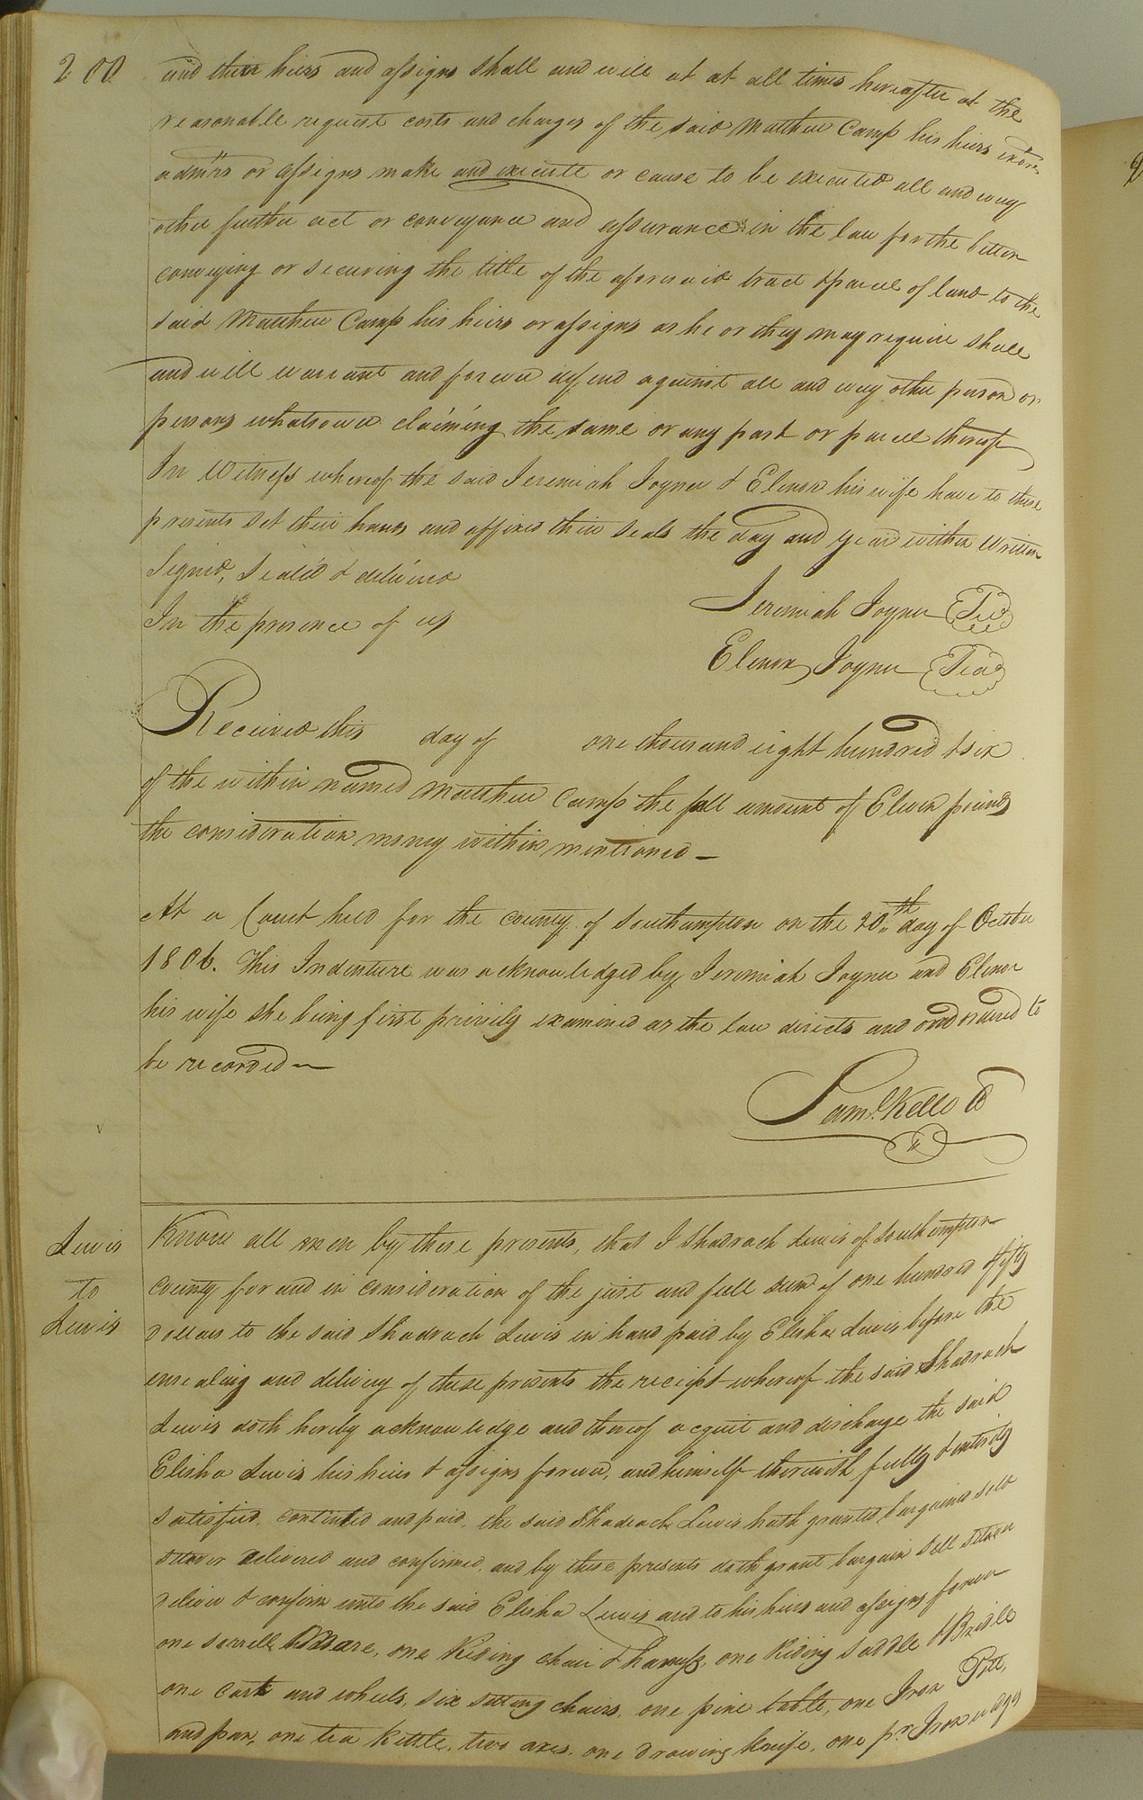 200
and their heirs and assigns shall and will at at all times hereafter at the
reasonable request costs and charges of the said Matthew Camp his heirs exõrs
admrs or assigns make and execute or cause to be executed all and every
other further act or conveyance and assurances in the law for the better
conveying or securing the title of the aforesaid tract & parcel of land to the
said Matthew Camp his heirs or assigns as he or they may require shall
and will warrant and forever defend against all and every other person or
persons whatsoever claiming the same or any part or parcel thereof
In Witness whereof the said Jeremiah Joyner & Elenor his wife have to these
presents set their hands and affixed their seals the day and year within written
Signed, Sealed & delivered
In the presence of us
Jeremiah Joyner Seal
Elenor Joyner Seal
Received this day of one thousand eight hundred & six
of the within named Matthew Camp the full amount of Eleven pounds
the consideration money within mentioned —
At a Court held for the county of Southampton on the 20th day of October
1806. This Indenture was acknowledged by Jeremiah Joyner and Elenor
his wife she being first privily examined as the law directs and ordered to
be recorded —
Saml. Kello
Lewis
to
Lewis
Know all men by these presents, that I Shadrach Lewis of Southampton
county for and in consideration of the just and full sum of one hundred & fifty
Dollars to the said Shadrach Lewis in hand paid by Elisha Lewis before the
ensealing and delivery of these presents the receipt whereof the said Shadrach
Lewis doth hereby acknowledge and thereof acquit and discharge the said
Elisha Lewis his heirs & assigns forever, and himself therewith fully & entirely
satisfied, contented and paid, the said Shadrach Lewis hath granted, bargained sold
delivered and confirmed, and by these presents doth grant bargain sell
deliver & confirm unto the said Elisha Lewis and to his heirs and assigns forever
one sorrell Mare, one Riding chair & harness, one Riding Saddle & Bridle
one cart and wheels, six sitting chairs, one pine table, one Iron Pott,
and pan, one tea kettle, two axes, one drawing knife, one pr. Iron wedges